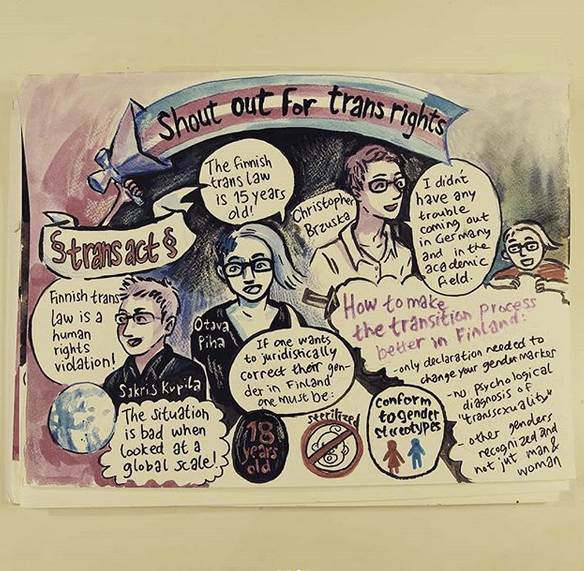 Shout out for trans rights
The finnish
trans law
is 15 years
old!
Christopher
Brzuska
I didn't
have any
trouble
coming out
in Germany
and in the
academic
field.
§ trans act §
Finnish trans
law is a
human
rights
violation!
Otava
Piha
Sakris Kupila
How to make
the transition process
better in Finland:
- only declaration needed to
change your gendermarker
- no psychological
diagnosis of
"transexuality"
- other genders
recognized and
not jut man &
woman
If one wants
to juridistically
correct their gen-
der in Finland
one must be:
The situation
is bad when
looked at a
global scale!
18
years
old
sterilized
conform
to gender
stereotypes